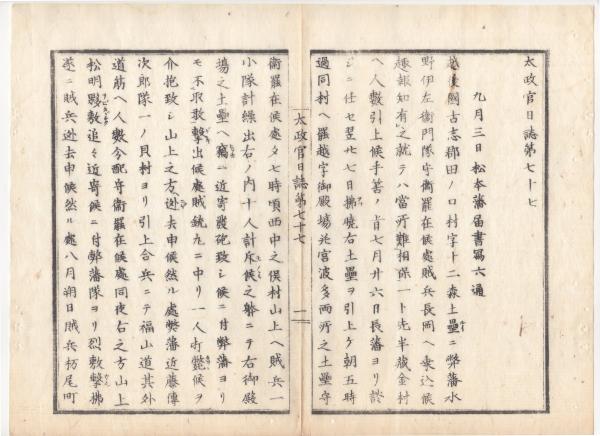 太政官日誌第七十七
九月三日松本藩届書寫六通
越後國古志郡田ノ口村字十二森土壘ニ弊藩水
野伊左衛門隊守衛罷在候處賊兵長岡ヘ乗込候
趣報知有之就テハ當所難相保一ト先半藏金村
ヘ人數引上候手筈ノ旨七月廿六日長藩ヨリ談
シニ任セ翌廿七日拂曉右土壘ヲ引上ケ朝五時
過同村ヘ罷越字御殿場並宮波多両所之土壘守
太政官日誌第七十七
一
衛罷在候處夕七時頃西中之俣村山上ヘ賊兵一
小隊計繰出右ノ内十人計斥候之躰ニテ右御殿
場之土壘ヘ竊ニ近寄發砲致シ候ニ付弊藩ヨリ
モ不取敢撃出候處賊銃丸ニ中リ一人打斃候ヲ
介抱致シ山上之方逃去申候然ル處弊藩近藤傳
次郎隊一ノ貝村ヨリ引上合兵ニテ福山道其外
道筋ヘ人數分配守衛罷在候處同夜右之方山上
松明夥敷追々近寄候ニ付弊藩隊ヨリ烈敷撃拂
遂ニ賊兵逃去申候然ル處八月朔日賊兵栃尾町